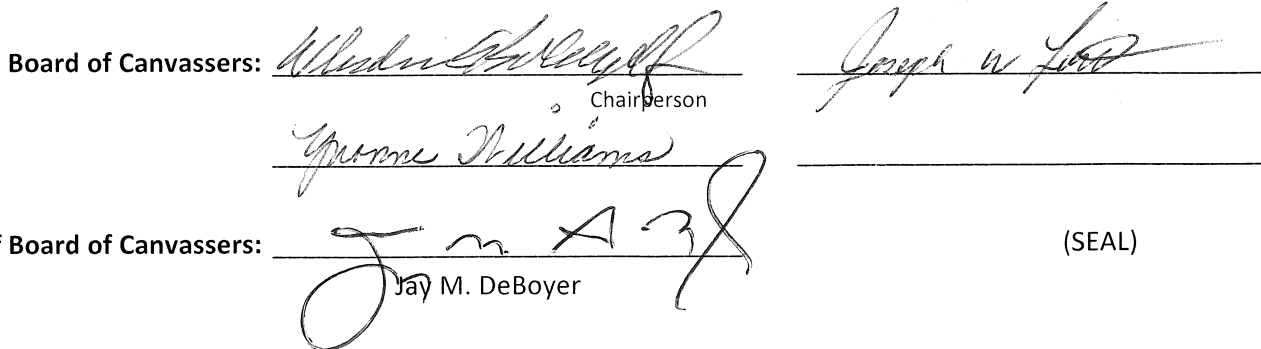 Board of Canvassers: Joseph W
Chairperson
Yvonne Williams
Board of Canvassers: (SEAL)
Jay M. DeBoyer